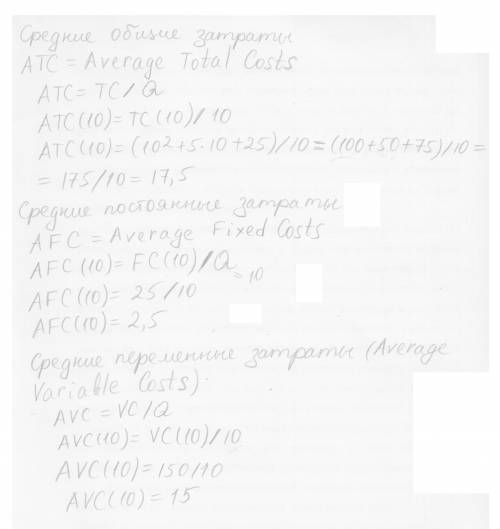 Средние общие затраты
ATC = Average Total Costs
ATC = TC/Q
ATC(10) = TC(10)/10
ATC(10) = (10²+5·10+25)/10 = (100+50+75)/10 =
= 175/10 = 17,5
Средние постоянные затраты
AFC = Average Fixed Costs
AFC(10) = FC(10)/Q = 10
AFC(10) = 25/10
AFC(10) = 2,5
Средние переменные затраты (Average
Variable Costs).
AVC = VC/Q
AVC(10) = VC(10)/10
AVC(10) = 150/10
AVC(10) = 15